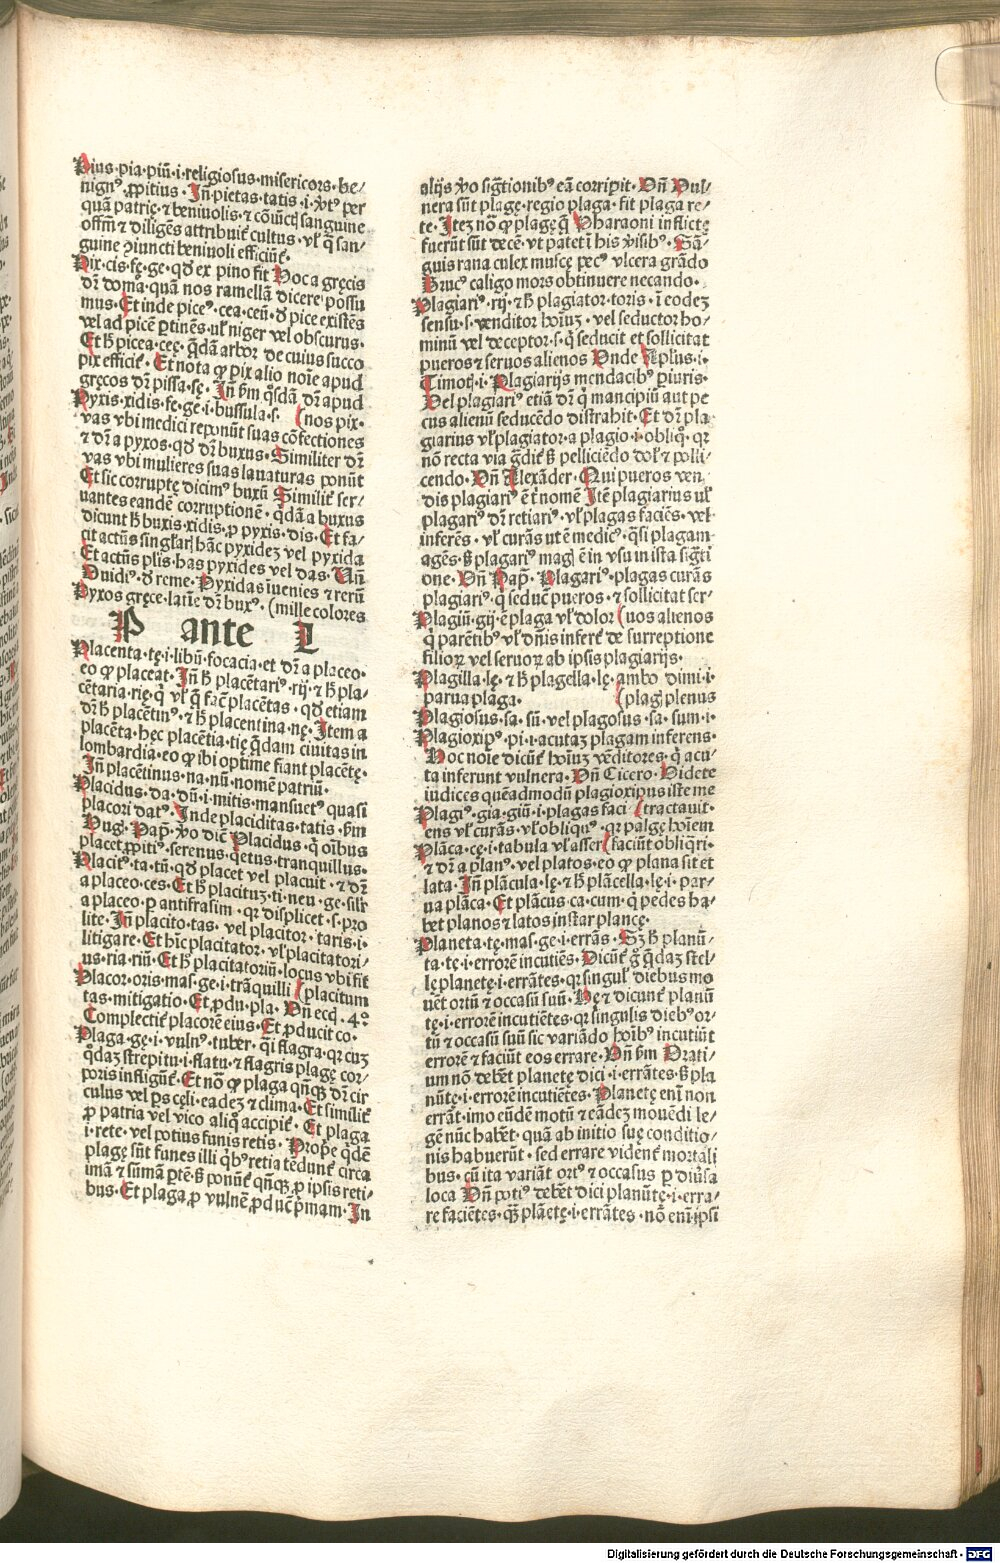 Pius·pia·piū·i·religiosus·misericors·be/
nignꝰ ꝓpitius· Jn̄ pietas·tatis·i·v̓tꝰ per
quā patrię·⁊ beniuolis·⁊ cōiūctꝭ sanguine
offm̄ ⁊ diligēs attribuit̉ cultus· vl̓ q̄ san/
guine ꝯiuncti beniuoli efficiūt̉·
Pix·cis·fę·ge·qđ ex pino fit Hoc a gręcis
dr̄ doma·quā nos ramellā dicere possu
mus·Et inde piceꝰ·cea·ceū·đ pice existēs
vel ad picē ꝑtinēs·ul̓ niger vel obscurus·
Et h̄ picea·cę·q̄dā arbor de cuius succo
pix efficit̉· Et nota ꝙ pix alio noīe apud
gręcos dr̄ pissa·sę· Jn̄ ẜm q̄sdā dr̄ apud
Pyxis·xidis·fe·ge·i·bussula·s· (nos pix·
vas vbi medici reponūt suas cōfectiones
⁊ dr̄ a pyxos·qđ dr̄ buxus· Similiter dr̄
vas vbi mulieres suas lauaturas ponūt
Et sic corruptę dicimꝰ buxū Similit̉ ser/
uantes eandē corruptionē· q̄dā a buxus
dicunt h̄ buxis·xidis·ꝓ pyxis·dis·Et fa/
cit actūs singl̓arꝭ hāc pyxidez vel pyxida
Et actūs pl̓is·has pyxides vel das· Vn̄
Ouidiꝰ·đ reme·Pyxidas īuenies ⁊ rerū
Pyxos gręce·latīe dr̄ buxꝰ· (mille colores
P ante L
Placenta·tę·i·libū·focacia·et dr̄ a placeo·
eo ꝙ placeat·Jn̄ h̄ placētariꝰ·rij·⁊ h̄ pla/
cētaria·rię·q̄ vl̓ q̄ fac̄ placētas·qđ etiam
dr̄ h̄ placētinꝰ·⁊ h̄ placentina·nę·Jtem a
placēta·hęc placētia·tię q̄dam ciuitas in
lombardia·eo ꝙ ibi optime fiant placētę·
Jn̄ placētinus·na·nū·nomē patriū·
Placidus·da·dū·i·mitis·mansuetꝰ quasi
placori datꝰ·Jnde placiditas·tatis·ẜm
Hug̉· Pap̄· v̓o dic̄ Placidus·q̄ oībus
placet ꝓpitiꝰ·serenus·q̄etus·tranquillus·
Placitꝰ·ta·tū·qđ placet vel placuit·⁊ dr̄
a placeo·ces·Et h̄ placituz·ti·neu·ge·sil̓r
a placeo·ꝑ antifrasim·qr displicet·s·pro
lite·Jn̄ placito·tas· vel placitor·taris·i·
litigare·Et hīc placitator·vl̓ placitatori/
us·ria·riū·Et h̄ placitatoriū·locus vbi fit
Placor·oris·mas·ge·i·trāquilli (placitum
tas·mitigatio·Et ꝓdu·pla·Vn̄ ecq̄·4ͦ·
Complectit̉ placorē eius·Et ꝓducit co·
Plaga·gę·i·vulnꝰ·tuber·qi flagra·qr cuz
q̄daz strepitu·i·flatu·⁊ flagris plagę cor/
poris infligūt̉·Et nō ꝙ plaga qn̄qꝫ dr̄ cir
culus vel ꝑs cęli·eadez ⁊ clima·Et similit̉
ꝓ patria vel vico aliq̄ accipit̉· Et plaga
i·rete·vel potius funis retis· Prop̄e q̄dē
plagę sunt funes illi q̄bꝰ retia tēdunt̉ circa
imā ⁊ sūmā ꝑtē·ß ponūt̉ qn̄qꝫ ꝓ ipsis reti/
bus·Et plaga ꝓ vulnē ꝓduc̄ p̄mam·Jn
alijs v̓o sig̅tionibꝰ eā corripit·Vn̄ Vul/
nera sūt plagę·regio plaga·fit plaga re/
te·Jtez nō ꝙ plagę q̄ Pharaoni inflictę
fuerūt sūt decē·vt patet ī his v̓sibꝰ·Sā/
guis rana culex muscę pecꝰ vlcera grādo
Brucꝰ caligo mors obtinuere necando·
Plagiariꝰ·rij·⁊ h̄ plagiator·toris·ī eodez
sensu·s·venditor hoīuz·vel seductor ho/
minū vel deceptor·s·q̄ seducit et sollicitat
pueros ⁊ seruos alienos Vnde Aplus·i·
Timotꝭ·i·Plagiarijs mendacibꝰ ꝑiuris·
Vel plagiariꝰ etiā dr̄ q̄ mancipiū aut pe
cus alienū seducēdo distrahit·Et dr̄ pla
giarius vl̓ plagiator·a plagio·i·obliq̄·qr
nō recta via g̅dit̉ ß pelliciēdo dol̓ ⁊ polli/
cendo·Vn̄ Alexāder·Qui pueros ven
dis plagiariꝰ ē t̄ nomē Jtē plagiarius ul̓
plagariꝰ dr̄ retiariꝰ·vl̓ plagas faciēs·vel
inferēs·vl̓ curās ut ē medicꝰ·q̄si plagam
agēs·ß plagariꝰ magꝭ ē in vsu in ista sig̅ti
one·Vn̄ Pap̄·Plagariꝰ·plagas curās
plagiariꝰ·q̄ seduc̄ pueros·⁊ sollicitat ser/
Plagiū·gij·ē plaga vl̓ dolor (uos alienos
q̄ parētibꝰ vl̓ dn̄is infert̉ de surreptione
filioꝝ vel seruoꝝ ab ipsis plagiarijs·
Plagilla·lę·⁊ h̄ plagella·lę·ambo dimi·i·
parua plaga· (plagꝭ plenus
Plagiosus·sa·sū·vel plagosus·sa·sum·i·
Plagioxipꝰ·pi·i·acutaz plagam inferens·
Hoc noīe dicūt̉ hoīuz vēditores·q̄ acu/
ta inferunt vulnera·Vn̄ Cicero·Videte
iudices quēadmodū plagioxipus iste me
Plagiꝰ·gia·giū·i·plagas faci (tractauit·
ens vl̓ curās·vl̓ obliquꝰ·qr palgę hoīem
Plāca·cę·i·tabula vl̓ asser (faciūt obliq̄ri·
⁊ dr̄ a planꝰ·vel platos·eo ꝙ plana sit et
lata·Jn̄ plācula·lę·⁊ h̄ plācella·lę·i·par/
ua plāca·Et plācus·ca·cum·q̄ pedes ha/
bet planos ⁊ latos instar plancę·
Planeta·tę·mas·ge·i·errās·Sꝫ h̄ planū/
ta·tę·i·errorē incutiēs·Dicūt̉ g̊ q̄daz stel/
lę planetę·i·errātes·qr singul̓ diebus mo
uēt ortū ⁊ occasū suū·Hę ⁊ dicunt̉ planū
tę·i·errorē incutiētes·qr singulis diebꝰ or/
tū ⁊ occasū suū sic variādo hoībꝰ incutiūt
errorē ⁊ faciūt eos errare·Vn̄ ẜm Orati/
um nō debēt planetę dici·i·errātes·ß pla
nūtę·i·errorē incutiētes·Planetę enī non
errāt·imo eūdē motū ⁊ eādez mouēdi le/
gē nūc habēt·quā ab initio suę conditio/
nis habuerūt·sed errare vident̉ mortali
bus·cū ita variāt ortꝰ ⁊ occasus ꝑ diu̓sa
loca Vn̄ potiꝰ debēt dici planūtę·i·erra/
re faciētes·qꝫ plāetę·i·errātes·nō enī ipsi
Digitalisierung gefördert durch die Deutsche Forschungsgemeinschaft - DFG